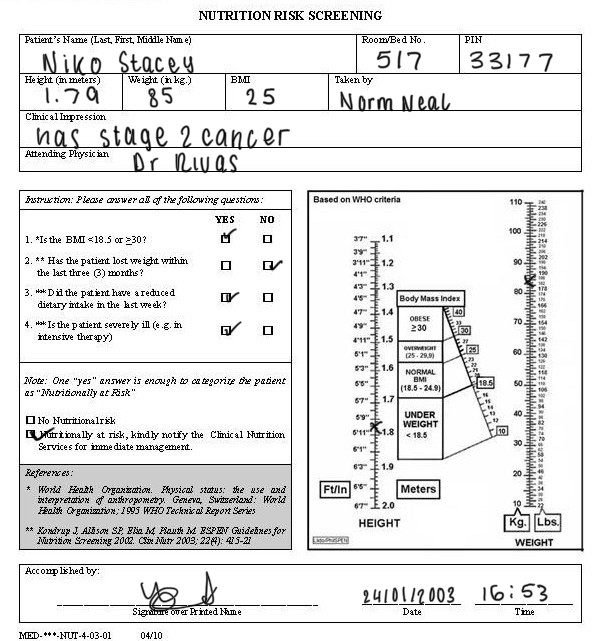 NUTRITION RISK SCREENING
Patient's Name (Last, First, Middle Name) Room/Bed No. PIN
Niko Stacey 517 33177
Height (in meters) Weight (in kg.) BMI Taken by
1.79 85 25 Norm Neal
Clinical Impression
has stage 2 cancer
Attending Physician
Dr Rivas
Instruction: Please answer all of the following questions:
YES NO
1. *Is the BMI <18.5 or ≥30?
2. ** Has the patient lost weight within
the last three (3) months?
3. ** Did the patient have a reduced
dietary intake in the last week?
4. ** Is the patient severely ill (e.g. in
intensive therapy)
Note: One "yes" answer is enough to categorize the patient
as "Nutritionally at Risk"
No Nutritional risk
Nutritionally at risk, kindly notify the Clinical Nutrition
Services for immediate management.
References:
* World Health Organization. Physical status: the use and
interpretation of anthropometry. Geneva, Switzerland: World
Health Organization; 1995 WHO Technical Report Series
** Kondrup J, Allison SP, Elia M, Plauth M. ESPEN Guidelines for
Nutrition Screening 2002. Clin Nutr 2003; 22(4): 415-21
Based on WHO criteria
3'7" 1.1
3'9"
3'11" 1.2
4'1"
4'3" 1.3
4'5"
4'7" 1.4
4'9"
4'11" 1.5
5'1"
5'3" 1.6
5'5"
5'7" 1.7
5'9"
1.8
5'11"
6'1"
6'3" 1.9
6'5"
6'7" 2.0
Ft/In Meters
HEIGHT
Body Mass Index
OBESE
≥30
OVERWEIGHT
(25 - 29,9)
NORMAL
BMI
(18.5 - 24.9)
UNDER
WEIGHT
< 18.5
40
30
25
18.5
10
110
100
90
80
70
60
50
40
30
20
10
Kg. Lbs.
WEIGHT
Accomplished by:
24/01/2003 16:53
Signature over Printed Name Date Time
MED-***-NUT-4-03-01 04/10